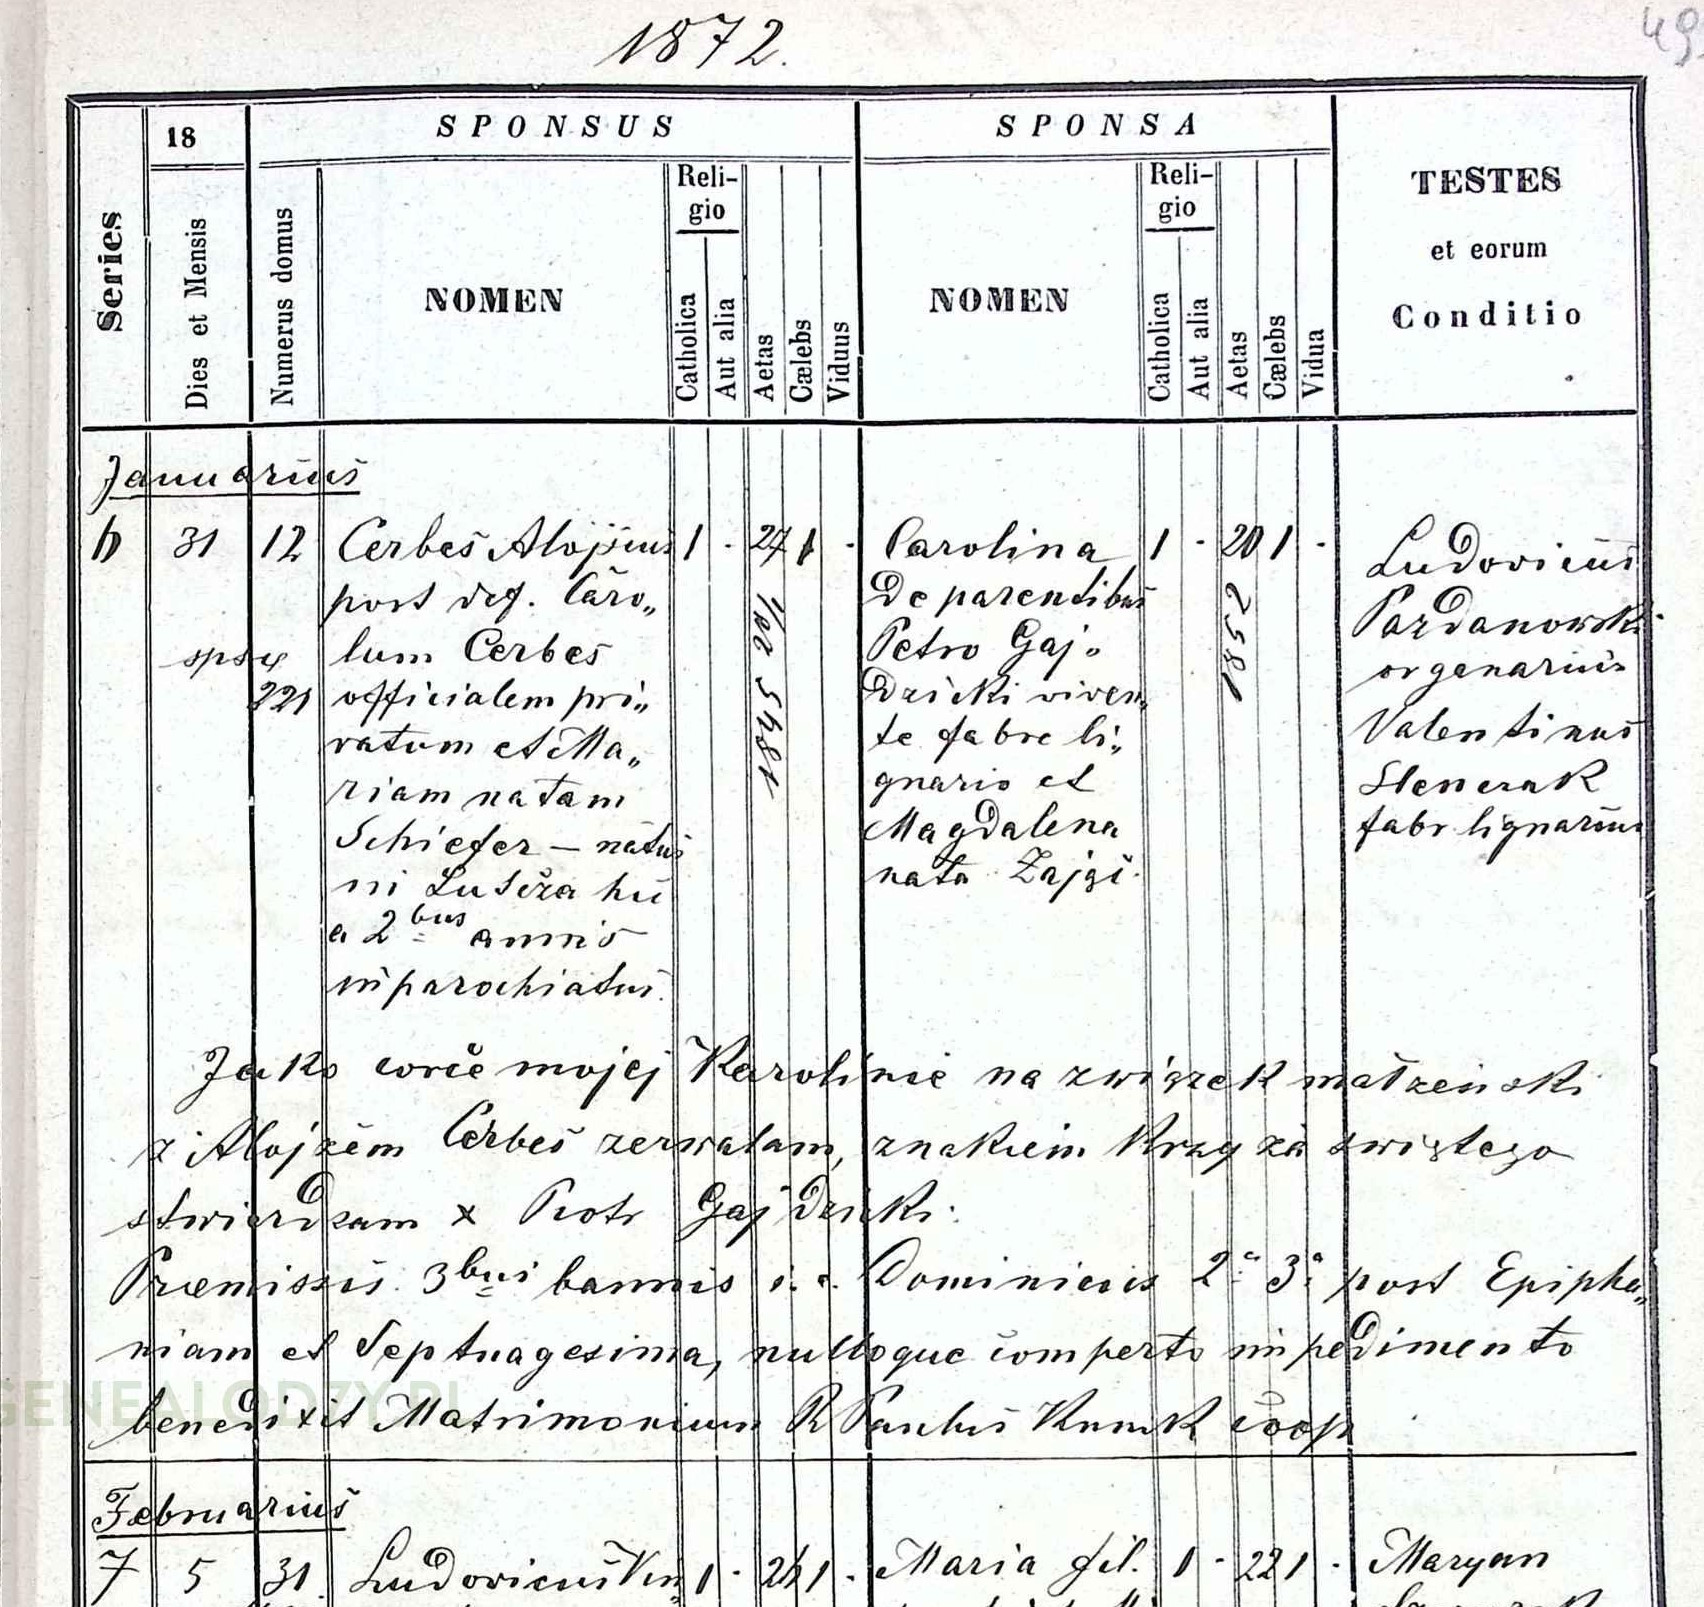 1872.
49
Series
18
Dies et Mensis
Numerus domus
SPONSUS
NOMEN
Reli-
gio
Catholica
Aut alia
Aetas
Cælebs
Viduus
SPONSA
NOMEN
Reli-
gio
Catholica
Aut alia
Aetas
Cælebs
Vidua
TESTES
et eorum
Conditio
Januarius
6 31 12
spsæ
221
Cerbes Alojsius
post def. Caro„
lum Cerbes
officialem pri„
vatum et Ma„
riam natam
Schiefer – natus
in Lutcza hic
a 2bus annis
inparochiatus.
1 - 27 1 -
1/02 1845
Carolina
De parentibus
Petro Gaj-
Dzicki viven„
te fabre li„
gnario et
Magdalena
nata Zając.
1 - 20 1 -
1852
Ludovicus
Pazdanowski
organarius
Valentinus
fabr lignarius
Jako córce mojej Karolinie na związek małżeński
z Alojzem Cerbes zezwalam, znakiem krzyża swiętego
stwierdzam x Piotr GajDzicki.
Præmissis 3bus bannis i.e. Dominicis 2a 3a post Epipha„
niam et Septuagesima, nulloque comperto impedimento
benedixit Matrimonium R Paulus coop
GENEALODZY.PL
Februarius
7 5 31
Ludovicus
1 - 24 1 -
Maria fil.
1 - 22 1 -
Maryan